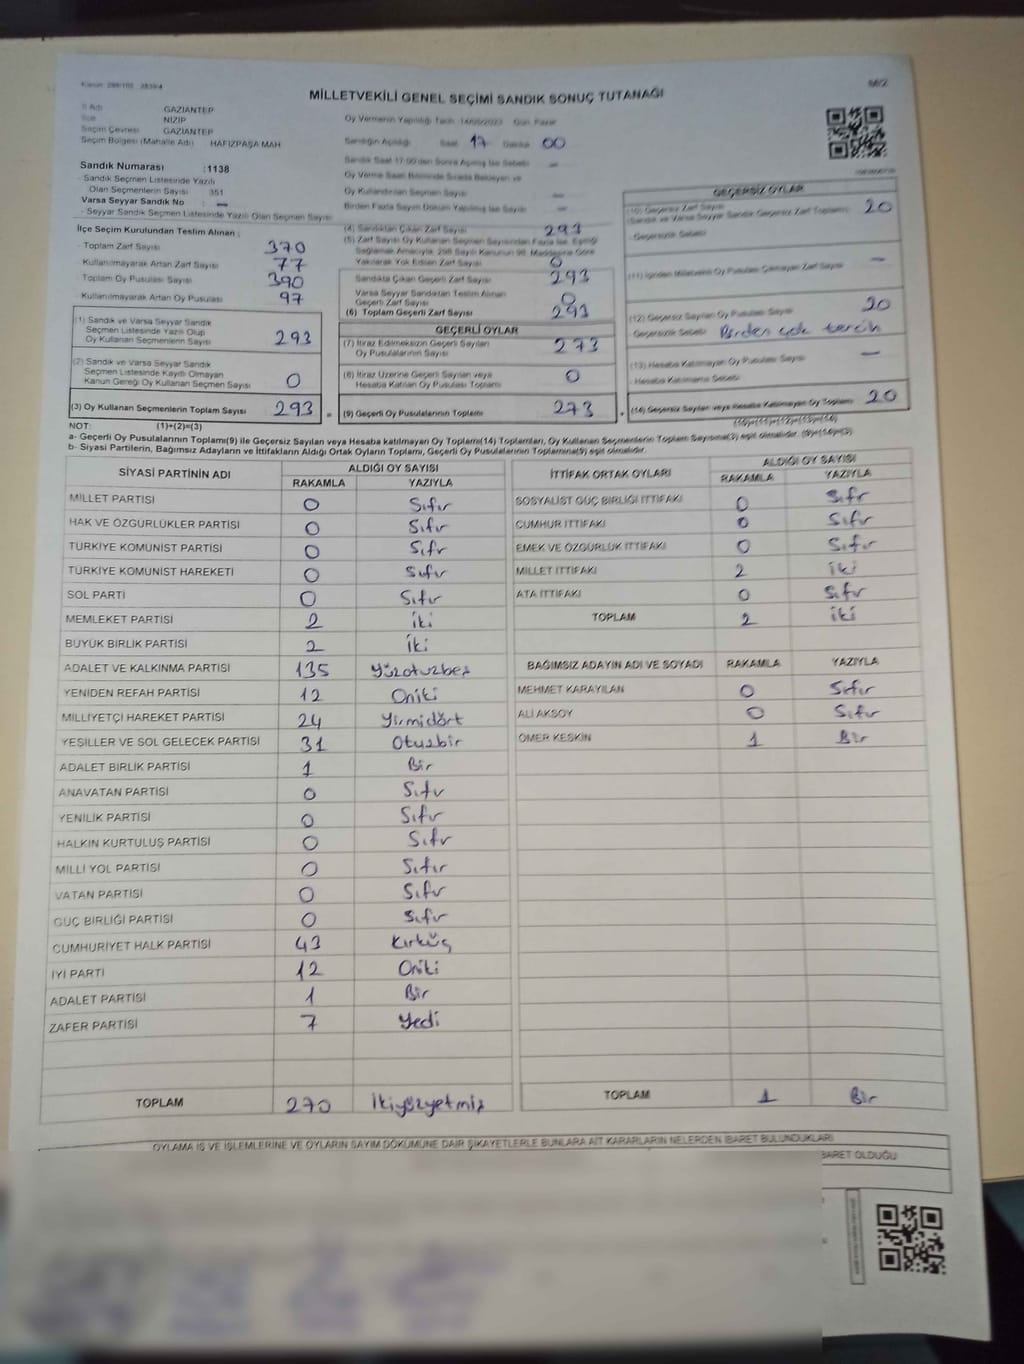 MİLLETVEKİLİ GENEL SEÇİMİ SANDIK SONUÇ TUTANAĞI
İl Adı GAZİANTEP
İlçe NİZİP
Seçim Çevresi GAZİANTEP
Seçim Bölgesi (Mahalle Adı) HAFIZPAŞA MAH
Sandık Numarası :1138
- Sandık Seçmen Listesinde Yazılı
Olan Seçmenlerin Sayısı 351
Varsa Seyyar Sandık No : —
- Seyyar Sandık Seçmen Listesinde Yazılı Olan Seçmen Sayısı
İlçe Seçim Kurulundan Teslim Alınan :
- Toplam Zarf Sayısı 370
- Kullanılmayarak Artan Zarf Sayısı 77
- Toplam Oy Pusulası Sayısı 390
- Kullanılmayarak Artan Oy Pusulası 97
(1) Sandık ve Varsa Seyyar Sandık
Seçmen Listesinde Yazılı Olup
Oy Kullanan Seçmenlerin Sayısı 293
(2) Sandık ve Varsa Seyyar Sandık
Seçmen Listesinde Kayıtlı Olmayan
Kanun Gereği Oy Kullanan Seçmen Sayısı 0
(3) Oy Kullanan Seçmenlerin Toplam Sayısı 293
Oy Vermenin Yapıldığı Tarih :14/05/2023 Gün: Pazar
Sandığın Açıldığı Saat 17 Dakika 00
Sandık Saat 17:00'den Sonra Açılmış İse Sebebi —
Oy Verme Saati Bitiminde Sırada Bekleyen ve
Oy Kullandırılan Seçmen Sayısı —
Birden Fazla Sayım Döküm Yapılmış İse Sayısı —
(4) Sandıktan Çıkan Zarf Sayısı 293
(5) Zarf Sayısı Oy Kullanan Seçmen Sayısından Fazla İse, Eşitliği
Sağlamak Amacıyla, 298 Sayılı Kanunun 98. Maddesine Göre
Yakılarak Yok Edilen Zarf Sayısı 0
Sandıkta Çıkan Geçerli Zarf Sayısı 293
Varsa Seyyar Sandıktan Teslim Alınan
Geçerli Zarf Sayısı 0
(6) Toplam Geçerli Zarf Sayısı 293
GEÇERLİ OYLAR
(7) İtiraz Edilmeksizin Geçerli Sayılan
Oy Pusulalarının Sayısı 273
(8) İtiraz Üzerine Geçerli Sayılan veya
Hesaba Katılan Oy Pusulası Toplamı 0
(9) Geçerli Oy Pusulalarının Toplamı 273
GEÇERSİZ OYLAR
(10) Geçersiz Zarf Sayısı
(Sandık ve Varsa Seyyar Sandık Geçersiz Zarf Toplamı) 20
- Geçersizlik Sebebi
(11) İçinden Milletvekili Oy Pusulası Çıkmayan Zarf Sayısı —
(12) Geçersiz Sayılan Oy Pusulası Sayısı 20
Geçersizlik Sebebi Birden çok tercih
(13) Hesaba Katılmayan Oy Pusulası Sayısı —
- Hesaba Katılmama Sebebi
(14) Geçersiz Sayılan veya Hesaba Katılmayan Oy Toplamı 20
NOT: (1)+(2)=(3) (10)+(11)+(12)+(13)=(14)
a- Geçerli Oy Pusulalarının Toplamı(9) ile Geçersiz Sayılan veya Hesaba katılmayan Oy Toplamı(14) Toplamları, Oy Kullanan Seçmenlerin Toplam Sayısına(3) eşit olmalıdır. (9)+(14)=(3)
b- Siyasi Partilerin, Bağımsız Adayların ve İttifakların Aldığı Ortak Oyların Toplamı, Geçerli Oy Pusulalarının Toplamına(9) eşit olmalıdır.
SİYASİ PARTİNİN ADI ALDIĞI OY SAYISI
RAKAMLA YAZIYLA
MİLLET PARTİSİ 0 Sıfır
HAK VE ÖZGÜRLÜKLER PARTİSİ 0 Sıfır
TÜRKİYE KOMÜNİST PARTİSİ 0 Sıfır
TÜRKİYE KOMÜNİST HAREKETİ 0 Sıfır
SOL PARTİ 0 Sıfır
MEMLEKET PARTİSİ 2 İki
BÜYÜK BİRLİK PARTİSİ 2 İki
ADALET VE KALKINMA PARTİSİ 135 Yüzotuzbeş
YENİDEN REFAH PARTİSİ 12 Oniki
MİLLİYETÇİ HAREKET PARTİSİ 24 Yirmidört
YEŞİLLER VE SOL GELECEK PARTİSİ 31 Otuzbir
ADALET BİRLİK PARTİSİ 1 Bir
ANAVATAN PARTİSİ 0 Sıfır
YENİLİK PARTİSİ 0 Sıfır
HALKIN KURTULUŞ PARTİSİ 0 Sıfır
MİLLİ YOL PARTİSİ 0 Sıfır
VATAN PARTİSİ 0 Sıfır
GÜÇ BİRLİĞİ PARTİSİ 0 Sıfır
CUMHURİYET HALK PARTİSİ 43 Kırküç
İYİ PARTİ 12 Oniki
ADALET PARTİSİ 1 Bir
ZAFER PARTİSİ 7 Yedi
TOPLAM 270 İkiyüzyetmiş
İTTİFAK ORTAK OYLARI ALDIĞI OY SAYISI
RAKAMLA YAZIYLA
SOSYALİST GÜÇ BİRLİĞİ İTTİFAKI 0 Sıfır
CUMHUR İTTİFAKI 0 Sıfır
EMEK VE ÖZGÜRLÜK İTTİFAKI 0 Sıfır
MİLLET İTTİFAKI 2 İki
ATA İTTİFAKI 0 Sıfır
TOPLAM 2 İki
BAĞIMSIZ ADAYIN ADI VE SOYADI RAKAMLA YAZIYLA
MEHMET KARAYILAN 0 Sıfır
ALİ AKSOY 0 Sıfır
ÖMER KESKİN 1 Bir
TOPLAM 1 Bir
OYLAMA İŞ VE İŞLEMLERİNE VE OYLARIN SAYIM DÖKÜMÜNE DAİR ŞİKAYETLERLE BUNLARA AİT KARARLARIN NELERDEN İBARET BULUNDUKLARI
BARET OLDUĞU